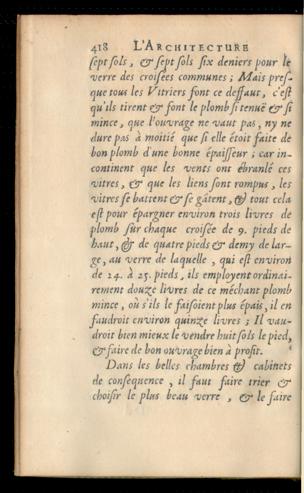 418 L'ARCHITECTURE
sept sols, & sept sols six deniers pour le
verre des croisées communes ; Mais pres-
que tous les Vitriers font ce deffaut, c'est
qu'ils tirent & font le plomb si tenuë & si
mince, que l'ouvrage ne vaut pas, ny ne
dure pas à moitié que si elle étoit faite de
bon plomb d'une bonne épaisseur ; car in-
continent que les vents ont ébranlé ces
vitres, & que les liens sont rompus, les
vitres se battent & se gâtent, & tout cela
est pour épargner environ trois livres de
plomb sur chaque croisée de 9. pieds de
haut, & de quatre pieds & demy de lar-
ge, au verre de laquelle, qui est environ
de 24. à 25. pieds, ils employent ordinai-
rement douze livres de ce méchant plomb
mince, où s'ils le faisoient plus épais, il en
faudroit environ quinze livres ; Il vau-
droit bien mieux le vendre huit sols le pied,
& faire de bon ouvrage bien à profit.
Dans les belles chambres & cabinets
de consequence, il faut faire trier &
choisir le plus beau verre, & le faire